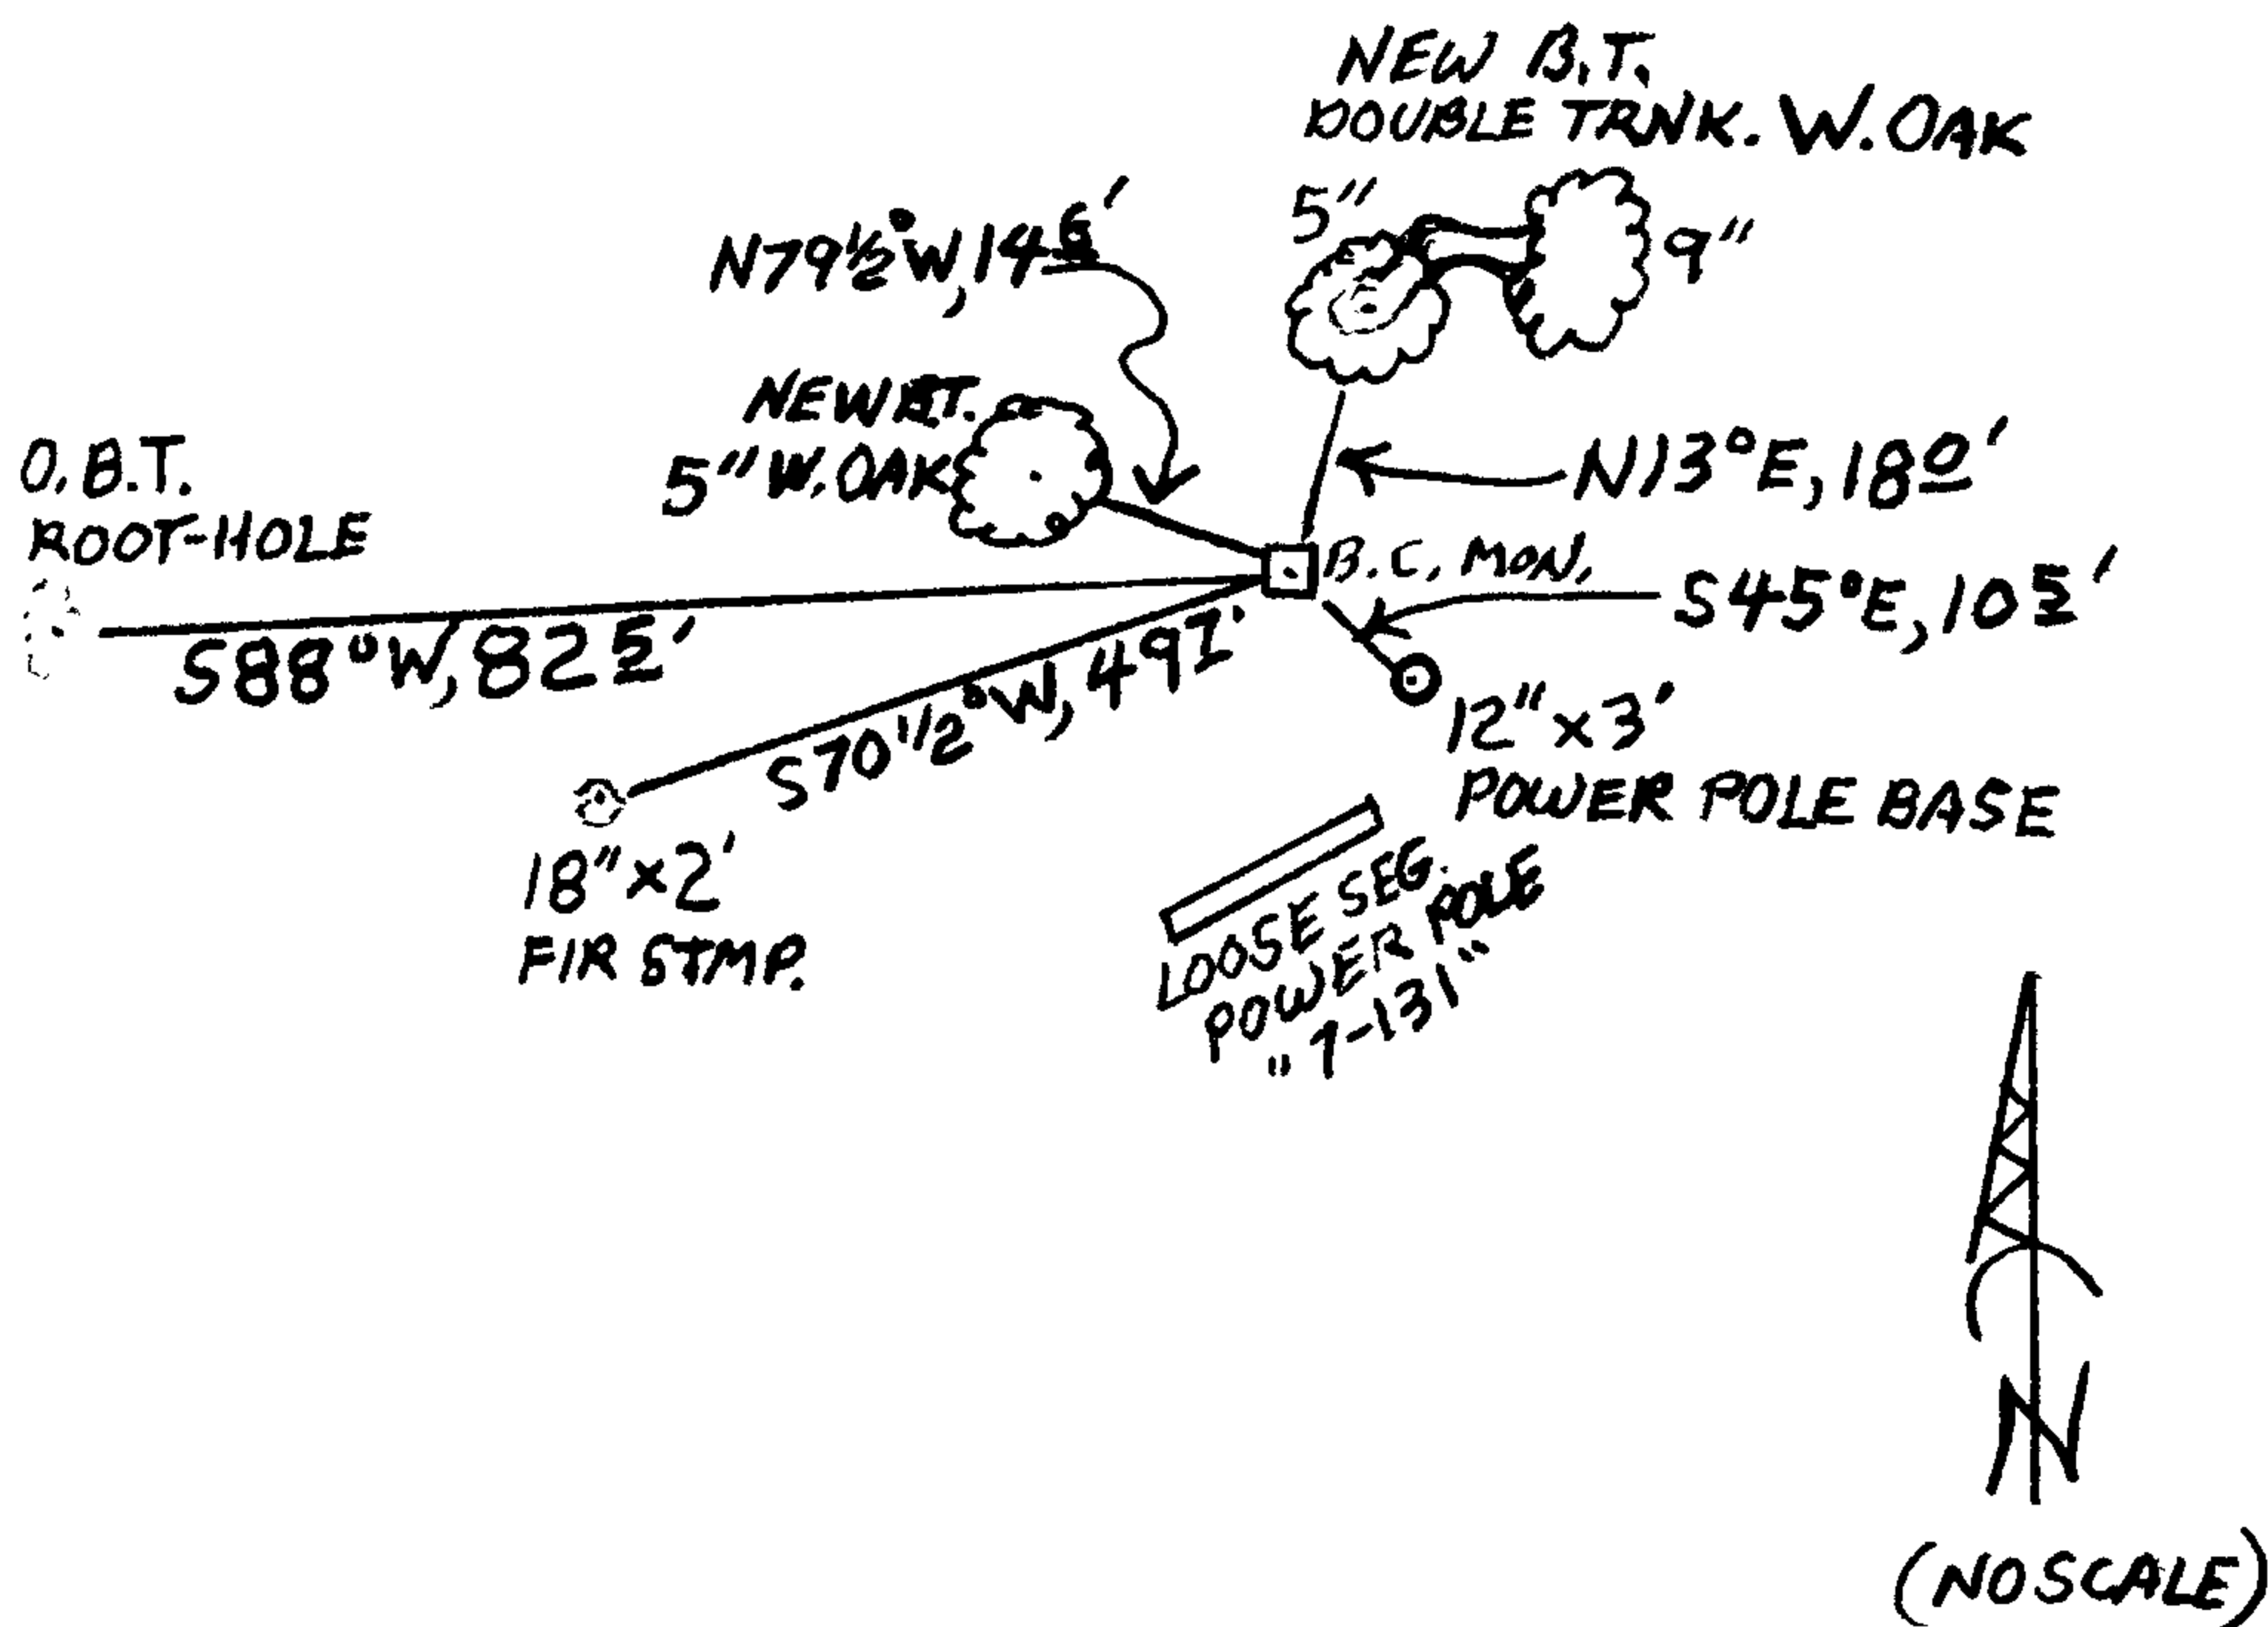 NEW B.T.
DOUBLE TRNK. W. OAK
5"
9"
N79½°W, 14 6'
NEW B.T.
5" W. OAK
O.B.T.
ROOT-HOLE
N13°E, 18 0'
B.C. MON.
S45°E, 10 5'
S88°W, 82 5'
S70 1/2°W, 49 2'
12" x 3'
POWER POLE BASE
18" x 2'
FIR STMP.
LOOSE SEG.
POWER POLE
"7-131"
N
(NO SCALE)